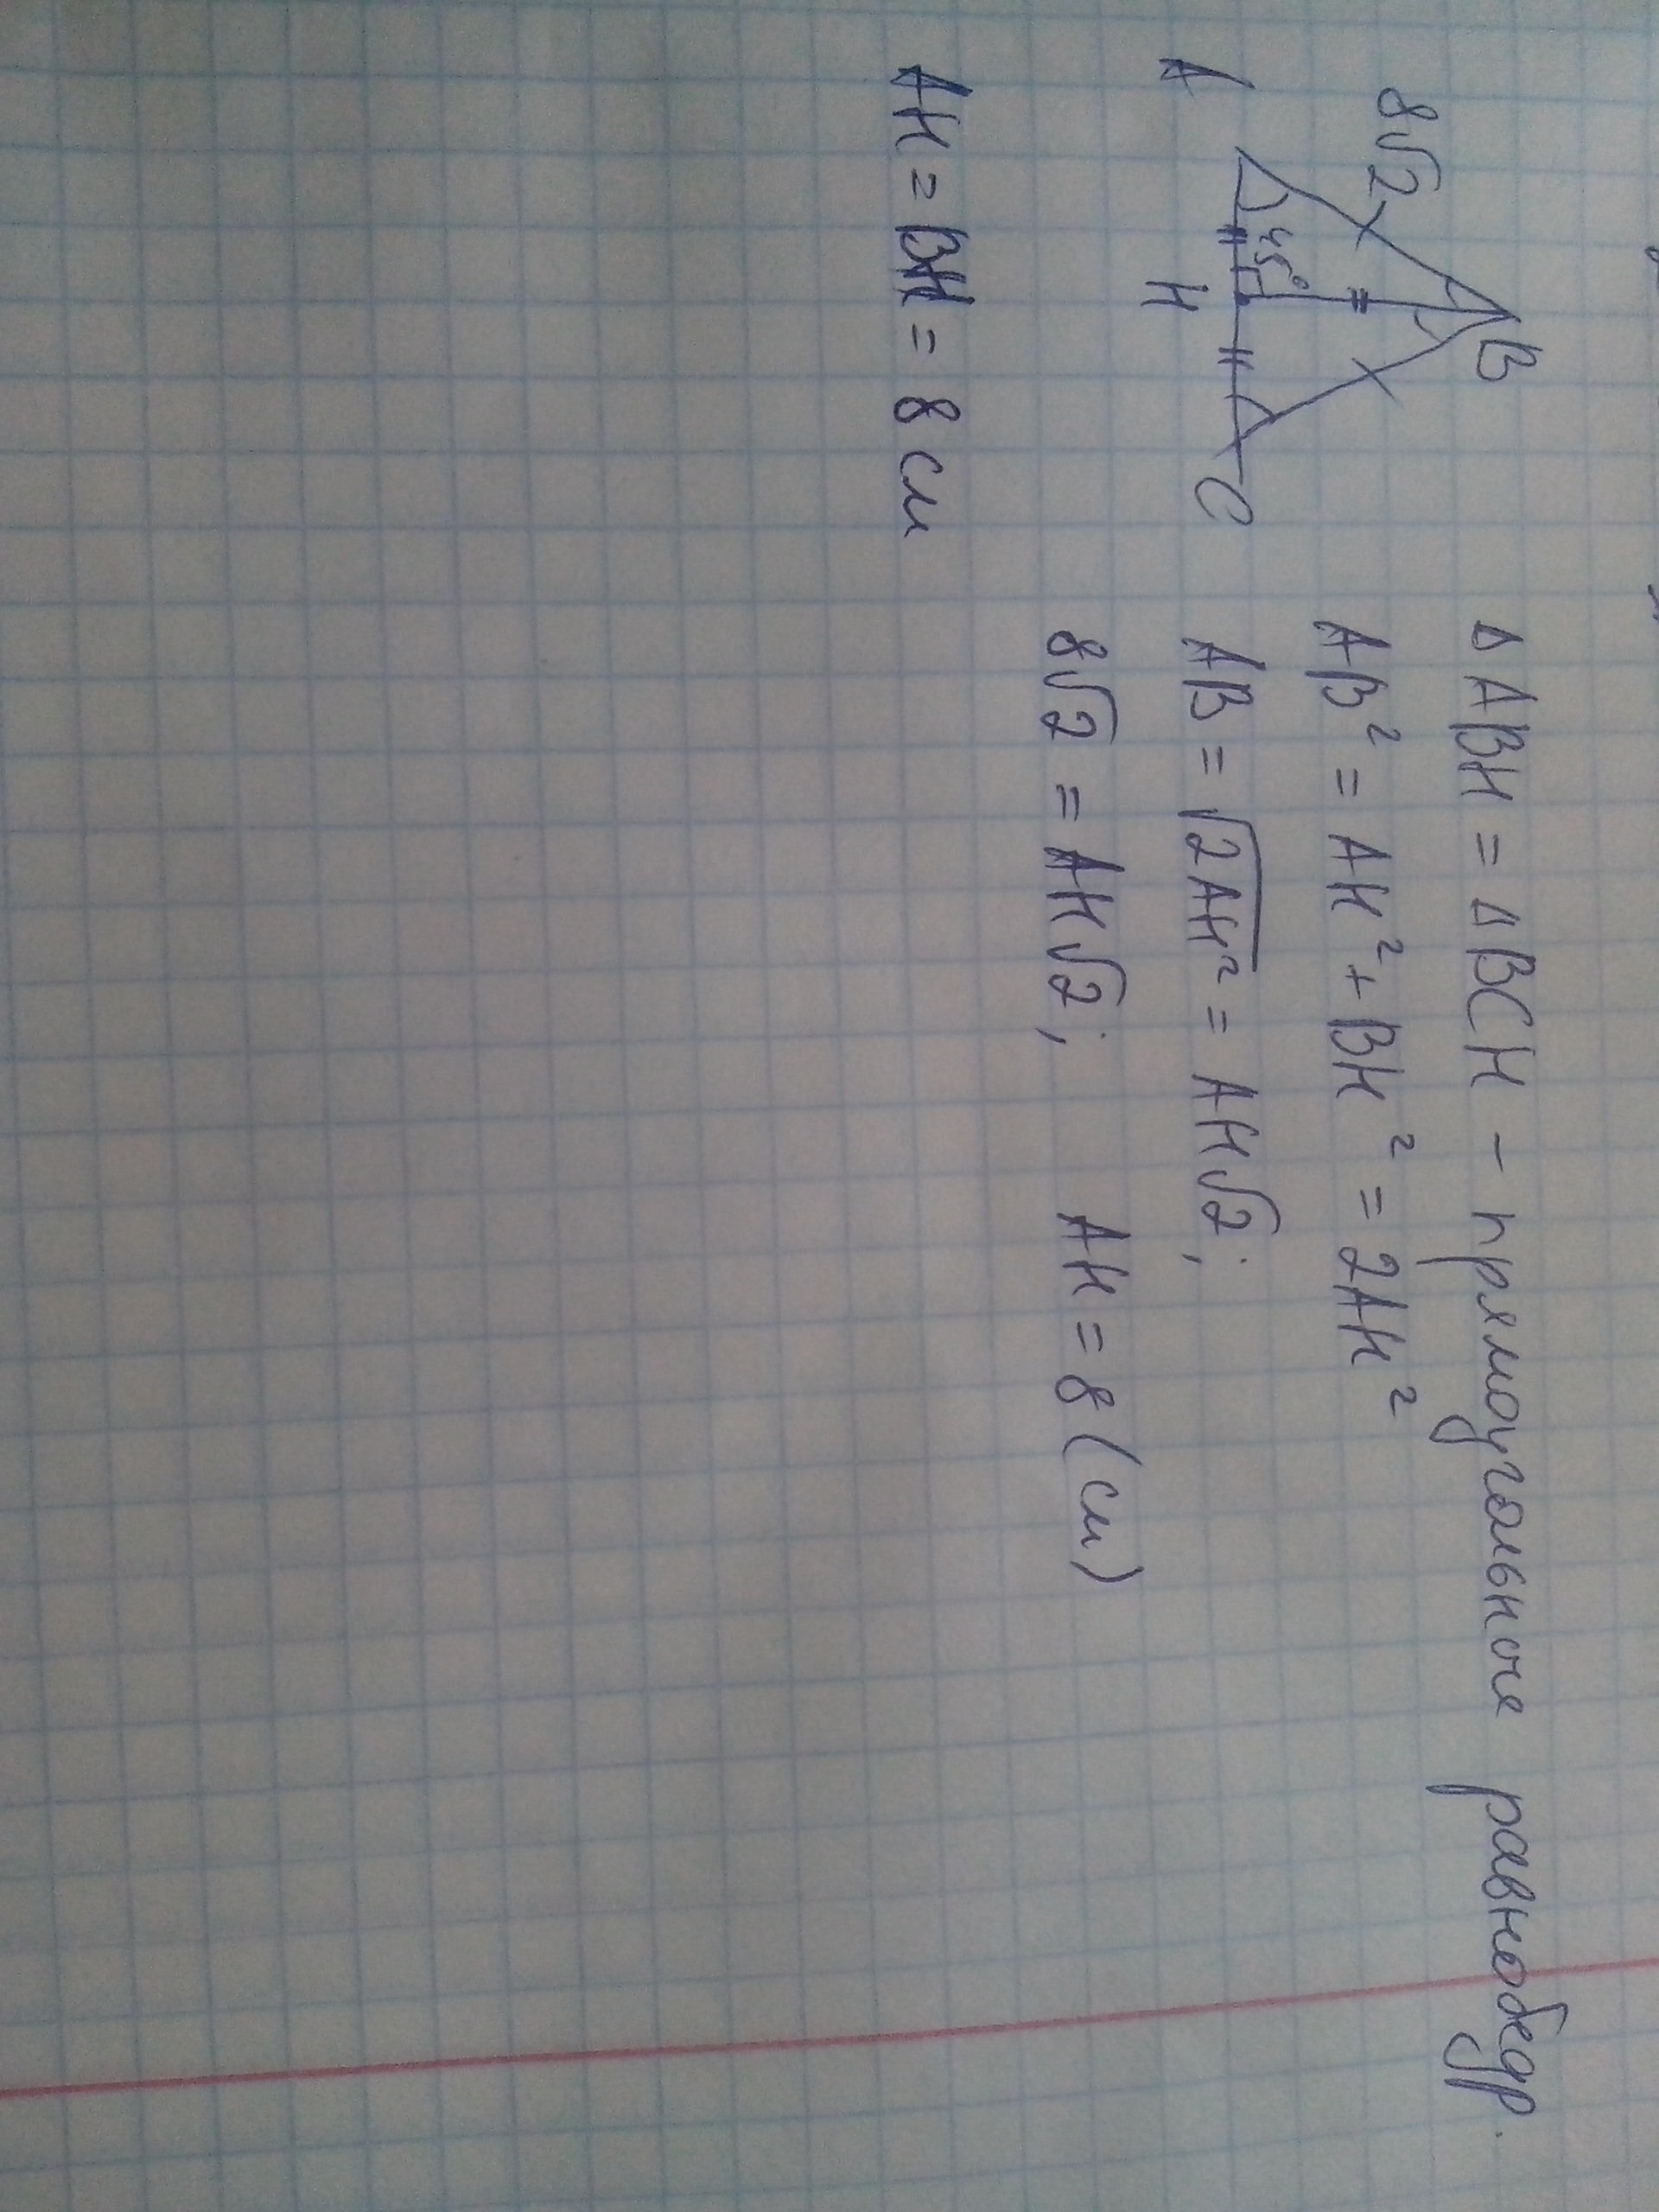 B
8√2
45°
A
H
C
Δ ABH = Δ BCH - прямоугольные равнобедр.
AB² = AH² + BH² = 2AH²
AB = √2AH² = AH√2;
8√2 = AH√2; AH = 8 (см)
AH = BH = 8 см